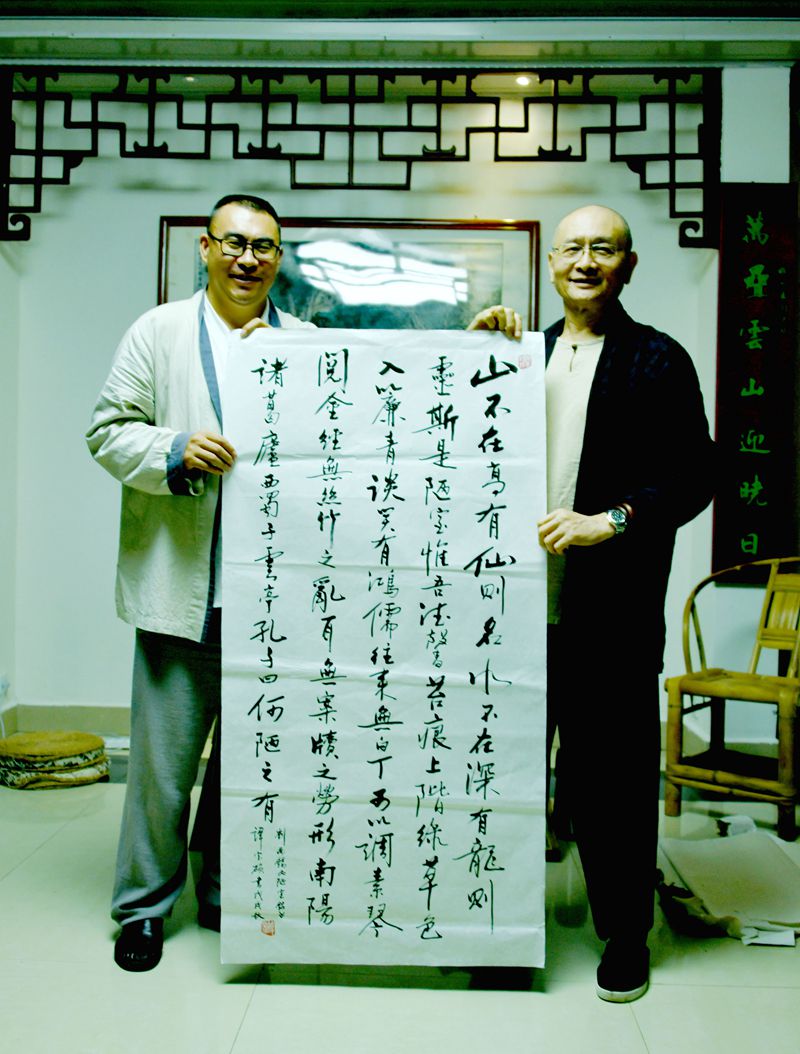 萬疊雲山迎曉日
山不在高有仙則名水不在深有龍則
靈斯是陋室惟吾德馨苔痕上階綠草色
入簾青談笑有鴻儒往來無白丁可以調素琴
閱金經無絲竹之亂耳無案牘之勞形南陽
諸葛廬西蜀子雲亭孔子曰何陋之有
劉禹錫陋室銘
譚書戊戌秋